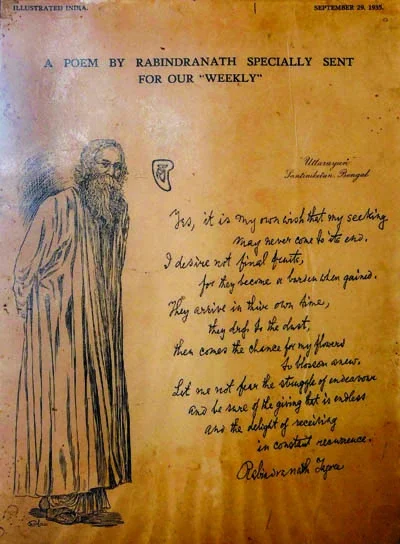 ILLUSTRATED INDIA.
SEPTEMBER 29, 1935.
A POEM BY RABINDRANATH SPECIALLY SENT
FOR OUR "WEEKLY"
"Uttarayan"
Santiniketan, Bengal
Yes, it is my own wish that my seeking
may never come to its end.
I desire not final fruits,
for they become a burden when gained.
They arrive in their own time,
they drop to the dust,
then comes the chance for my flowers
to blossom anew.
Let me not fear the struggle of endeavour
and be sure of the giving that is endless
and the delight of receiving
in constant recurrence.
Rabindranath Tagore